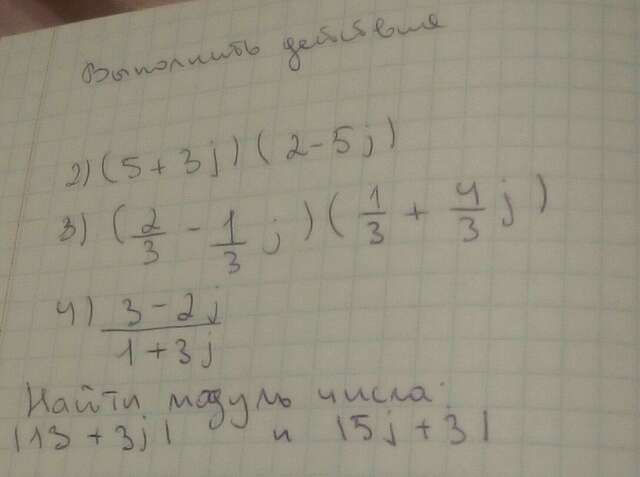 Выполнить действия
2) (5+3j)(2-5j)
3) (2/3 - 1/3 j)(1/3 + 4/3 j)
4) 3-2j / 1+3j
Найти модуль числа:
|13+3j| и |5j+3|